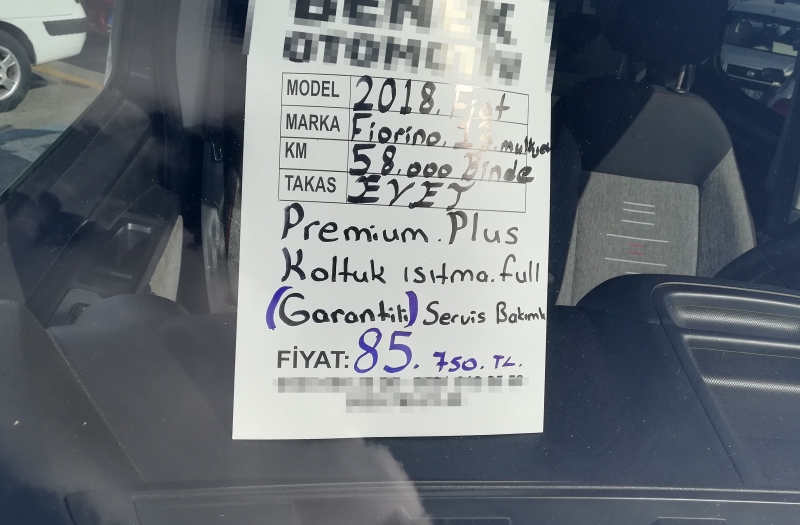 OTOMOTİV
MODEL 2018. Fiat
MARKA Fiorino. 1.3. multijet
KM 58.000 Binde
TAKAS EVET
Premium. Plus
Koltuk ısıtma. full
(Garantili) Servis Bakımlı
FİYAT: 85. 750. TL.